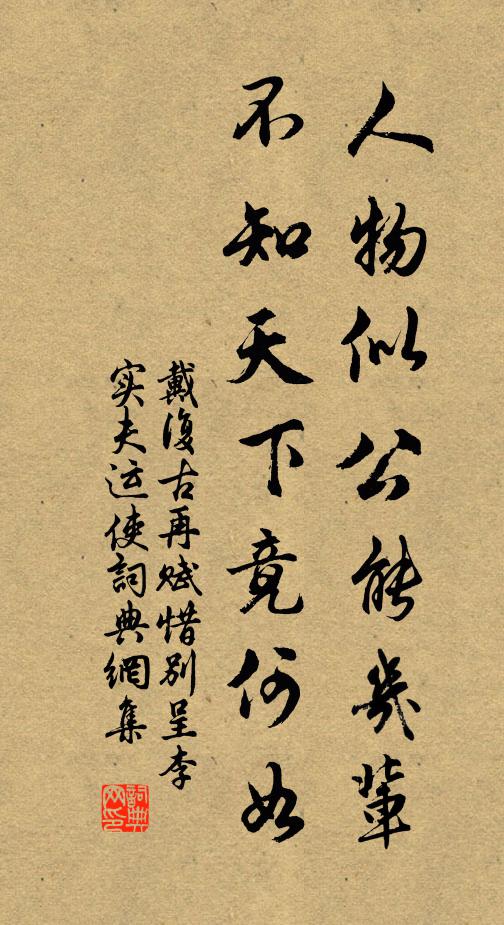 人物似公能幾輩
不知天下竟何如
戴復古再賦惜別呈李
实夫运使詞典網集
詞典网印